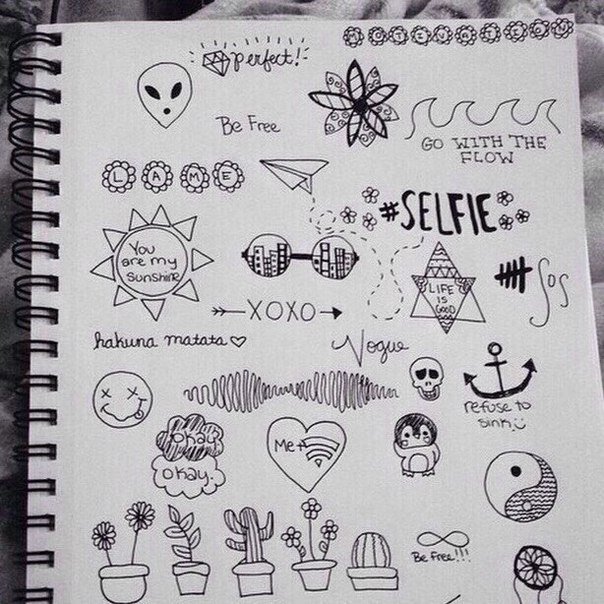 MOTIVATION
perfect!
Be Free
GO WITH THE
FLOW
LAME
#SELFIE
You
are my
Sunshine
LIFE
IS
GOOD
SOS
XOXO
hakuna matata
Vogue
refuse to
sink
okay
okay.
Me +
Be Free!!!